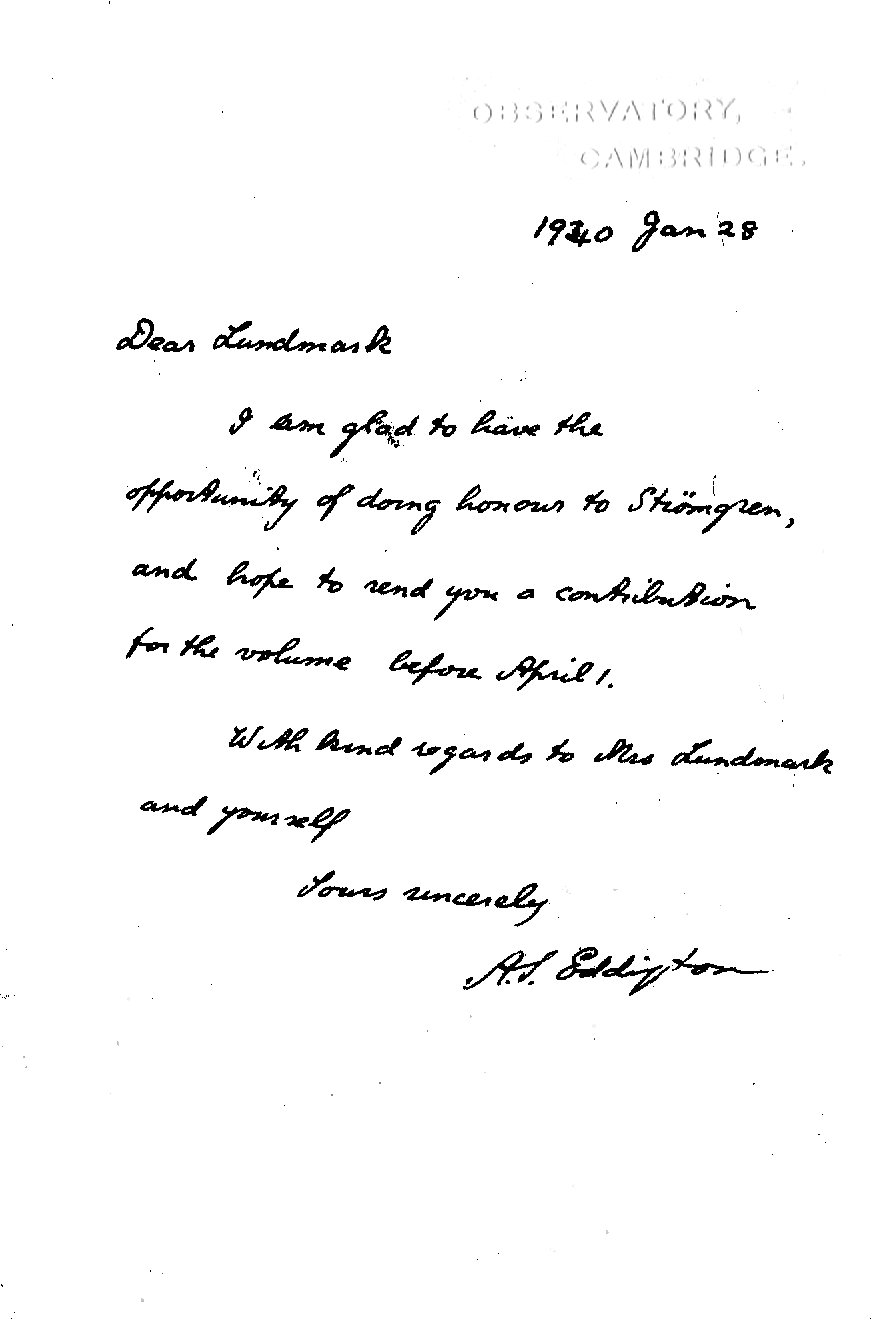 OBSERVATORY,
CAMBRIDGE.
1940 Jan 28
Dear Lundmark
I am glad to have the
opportunity of doing honour to Strömgren,
and hope to send you a contribution
for the volume before April 1.
With kind regards to Mrs Lundmark
and yourself
Yours sincerely
A.S. Eddington